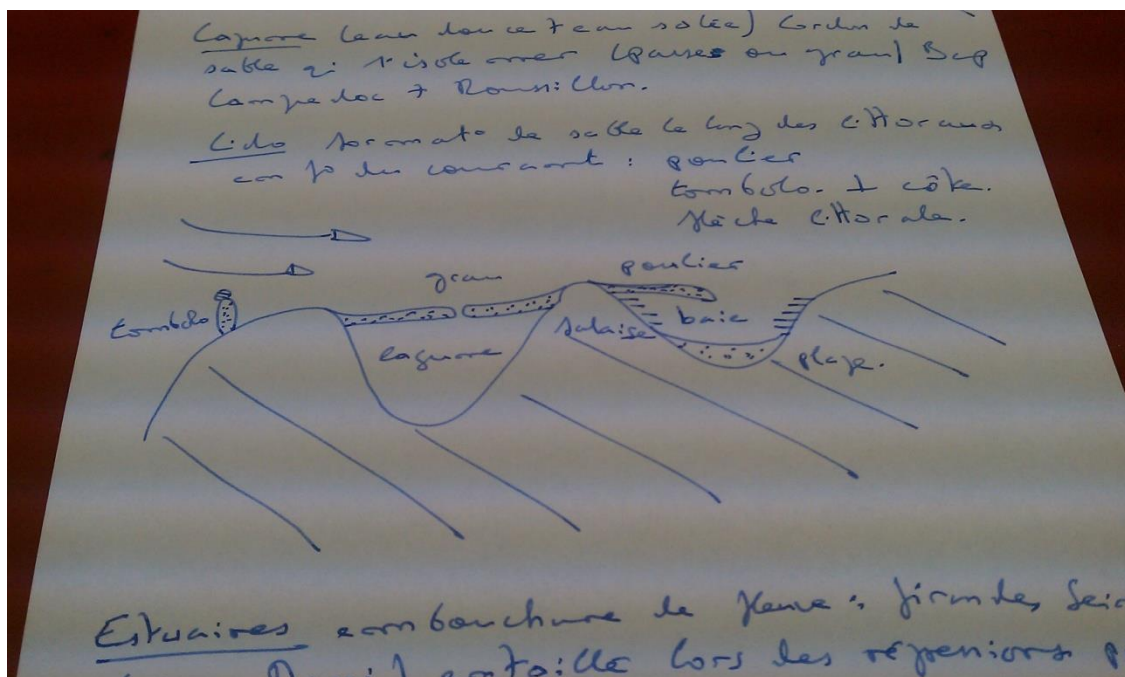 Lagune (eau douce + eau salée) Cordon de
sable qi l'isole mer (passes ou grau) Bcp
Languedoc + Roussillon.
Lido formato de sable le long des littoraux
en fo du courant : poulier
tombolo. ⊥ côte.
flèche littorale.
grau poulier
tombolo falaise baie
lagune plage.
Estuaires embouchure de fleuve :
entaillé lors des régressions